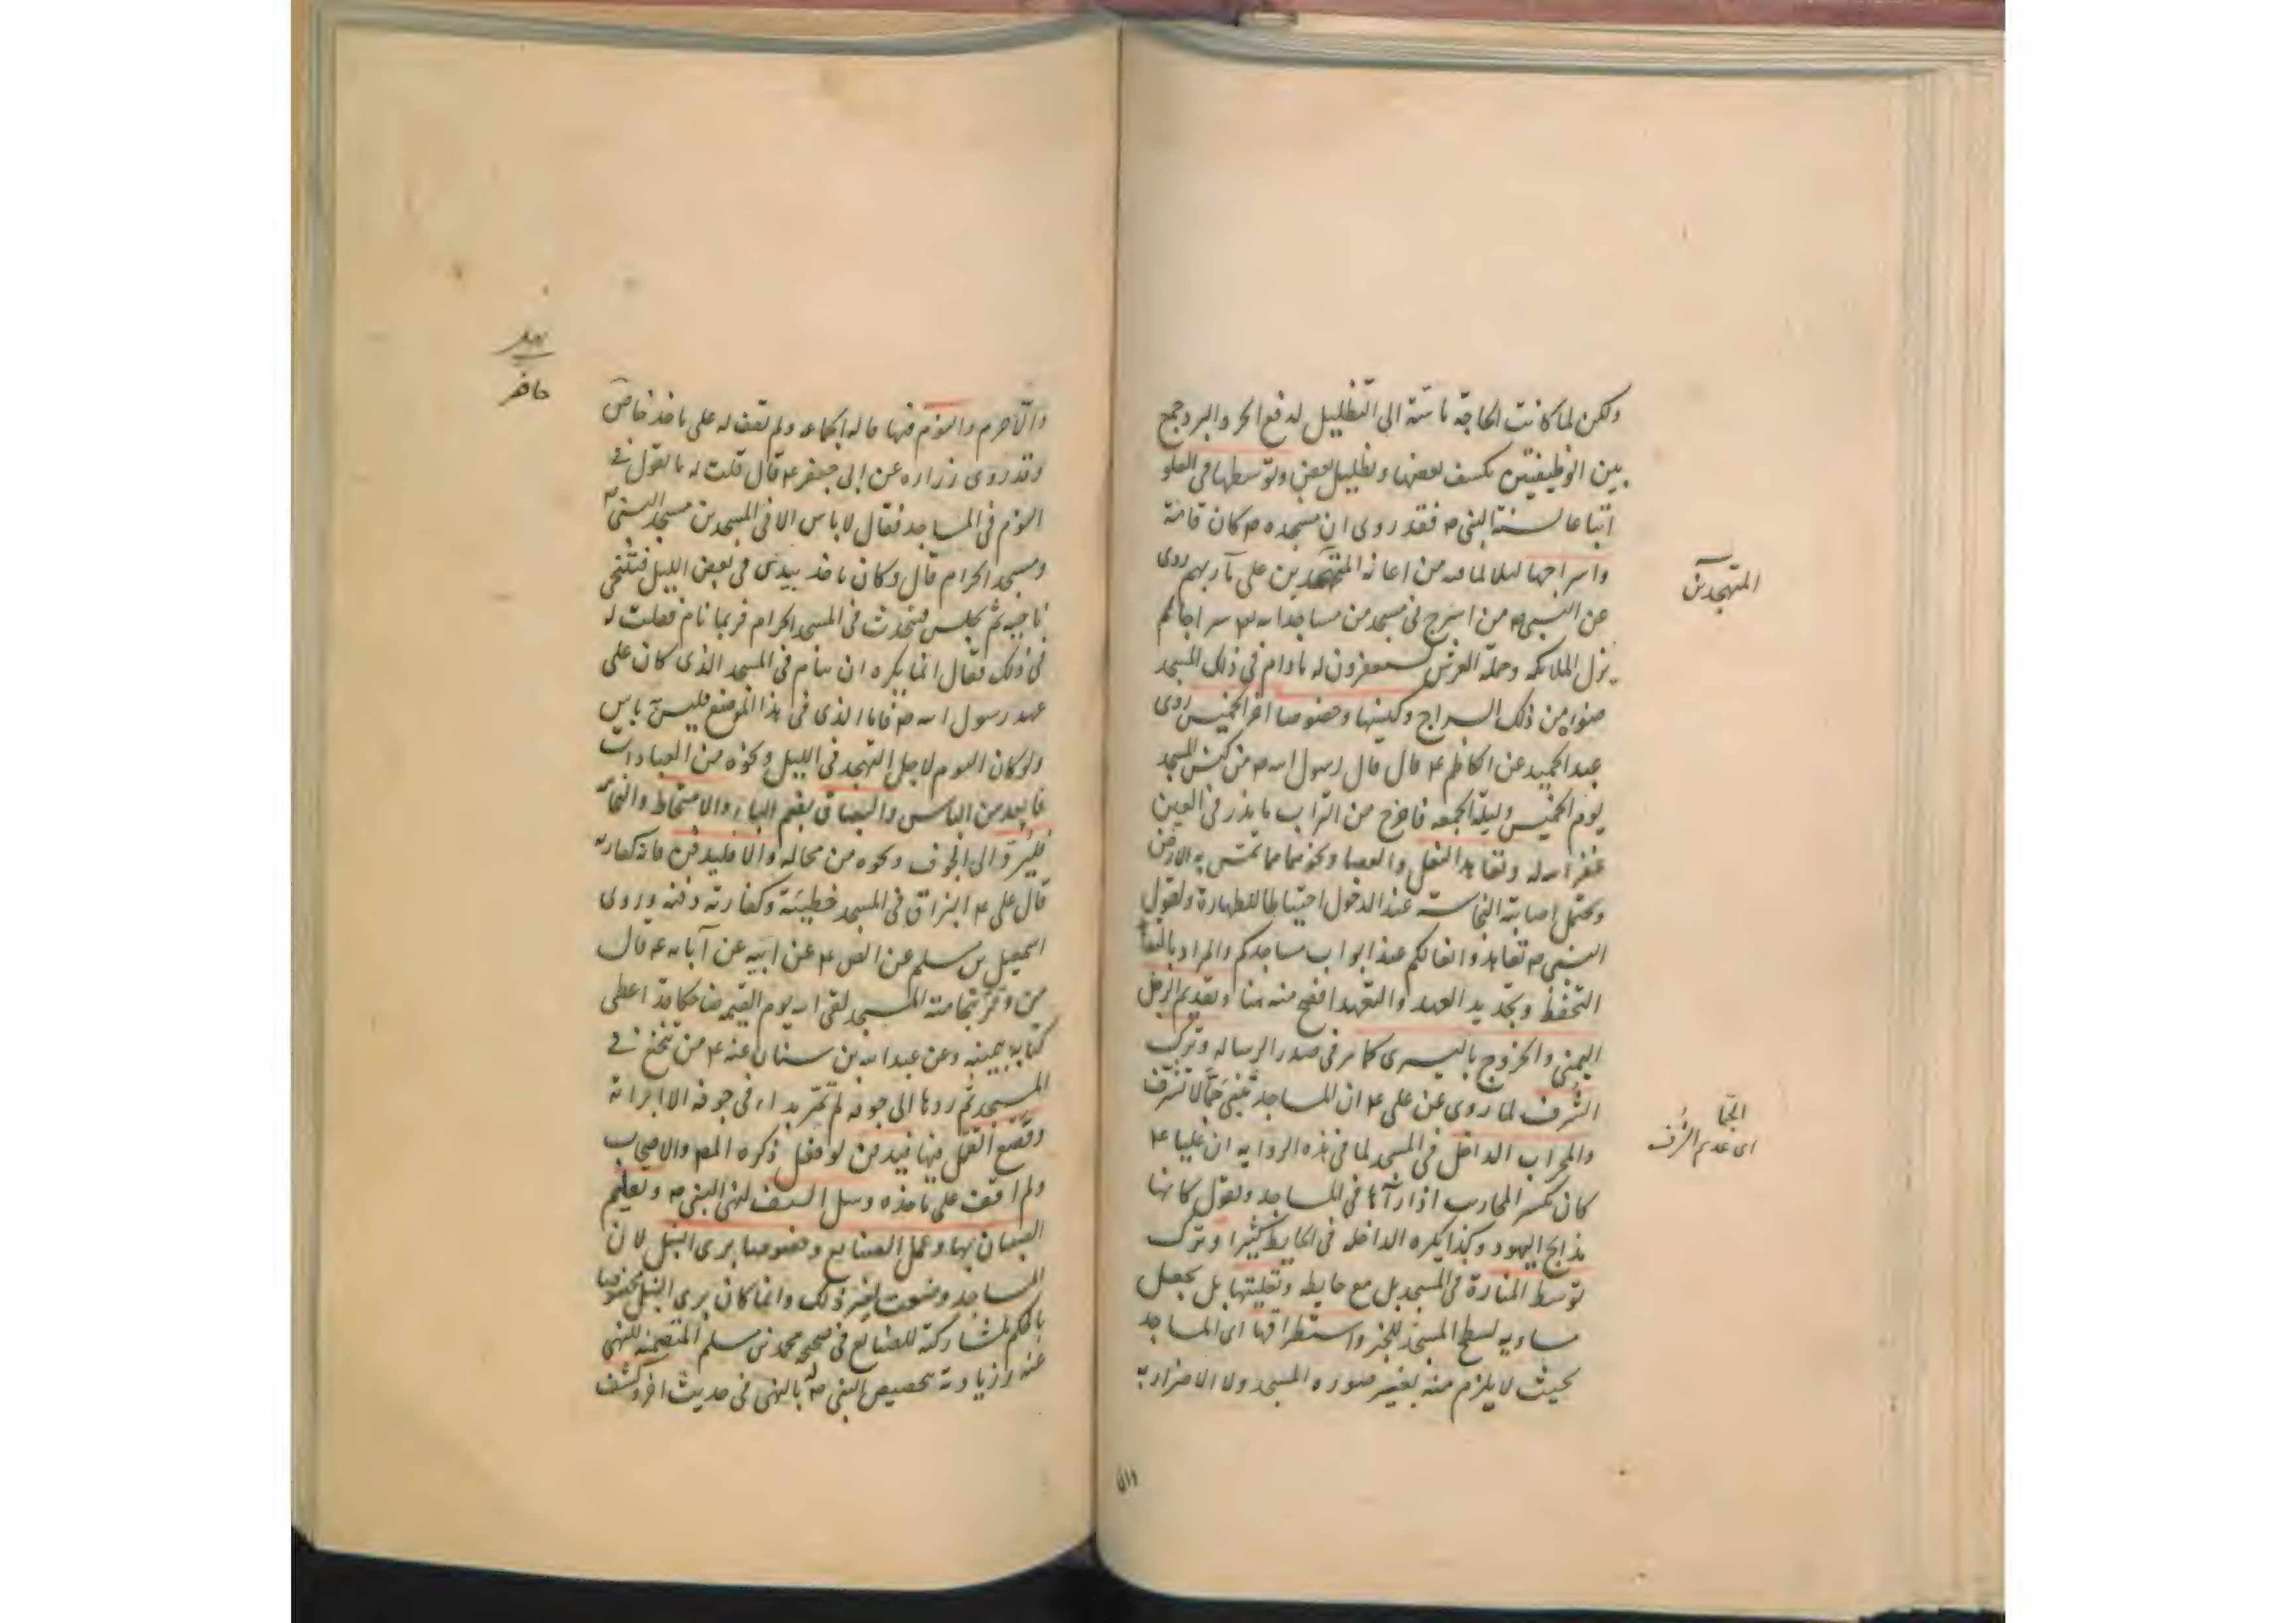 ولكن لما كانت الحاجة ماسة الى التظليل لدفع الحر والبرد جمع
بين الوظيفتين بكشف بعضها وتظليل بعض وتوسطها فى العلو
اتباعا لسنة النبى ص فقد روى ان مسجده ص كان قامة
واسراجها ليلا لما فيه من اعانة المتهجدين على مآربهم روى
عن النبى ص من اسرج فى مسجد من مساجد الله سراجا لم
يزل الملائكه وحملة العرش يستغفرون له ما دام فى ذلك المسجد
ضوء من ذلك السراج وكنسها وخصوصا اخر الخميس روى
عبد الحميد عن الكاظم ع قال قال رسول الله ص من كنس المسجد
يوم الخميس وليلة الجمعه فاخرج من التراب ما يذر فى العين
غفر الله له وتعاهد النعل والعصا ونحوهما مما تمس به الارض
ويحتمل اصابة النجاسة عند الدخول احتياطا للطهارة ولقول
النبى ص تعاهدوا نعالكم عند ابواب مساجدكم والمراد بالتعا
التحفظ وتجديد العهد والتعهد افصح منه هنا وتقديم الرجل
اليمنى والخروج باليسرى كما مر فى صدر الرساله وترك
الشرف لما روى عن على ع ان المساجد تبنى جما لا تشرف
والمحراب الداخل فى المسجد لما فى هذه الرواية ان عليا ع
كان يكسر المحاريب اذا رآها فى المساجد ويقول كانها
مذابح اليهود وكذا يكره الداخله فى الحايط كثيرا وترك
توسط المنارة فى المسجد بل مع حايطه وتعليتها بل يجعل
مساويه لسطح المسجد للخبر واستطراقها اى المساجد
بحيث لا يلزم منه تغيير صوره المسجد ولا الاضرار به
المتهجدين
الجما
اى عديم الشرف
والا حرم والنوم فيها قاله الجماعه ولم نقف له على ماخذ خاص
وقد روى زراره عن ابى جعفر ع قال قلت له ما تقول فى
النوم فى المساجد فقال لا باس الا فى المسجدين مسجد النبى ص
ومسجد الحرام قال وكان ياخذ بيدى فى بعض الليل فيتنحى
ناحية ثم يجلس فيتحدث فى المسجد الحرام فربما نام فقلت له
فى ذلك فقال انما يكره ان ينام فى المسجد الذى كان على
عهد رسول الله ص فاما الذى فى هذا الموضع فليس به باس
ولو كان النوم لاجل التهجد فى الليل ونحوه من العبادات
فابعد من الباس والبصاق بضم الباء والامتخاط والنخامه
فليرد الى الجوف ونحوه من محاله والا فليدفن فانه كفارته
قال على ع البزاق فى المسجد خطيئة وكفارته دفنه وروى
اسمعيل بن مسلم عن الص ع عن ابيه عن آبائه ع قال
من وقر بنخامته المسجد لقى الله يوم القيمه ضاحكا قد اعطى
كتابه بيمينه وعن عبد الله بن سنان عنه ع من تنخع فى
المسجد ثم ردها الى جوفه لم تمر بداء فى جوفه الا ابراته
وقصع القمل فيها فيدفن لو فعل ذكره المص والاصحاب
ولم اقف على ماخذه وسل السيف لنهى النبى ص وتعليم
الصبيان بها وعمل الصنايع وخصوصا برى النبل لان
المساجد وضعت لغير ذلك وانما كان برى النبل مخصوصا
بالحكم لمشاركته للصنايع فى صحيحه محمد بن مسلم المتضمنه للنهى
عنه وزيادته بتخصيص النبى ص له بالنهى فى حديث اخر وكشف
والا